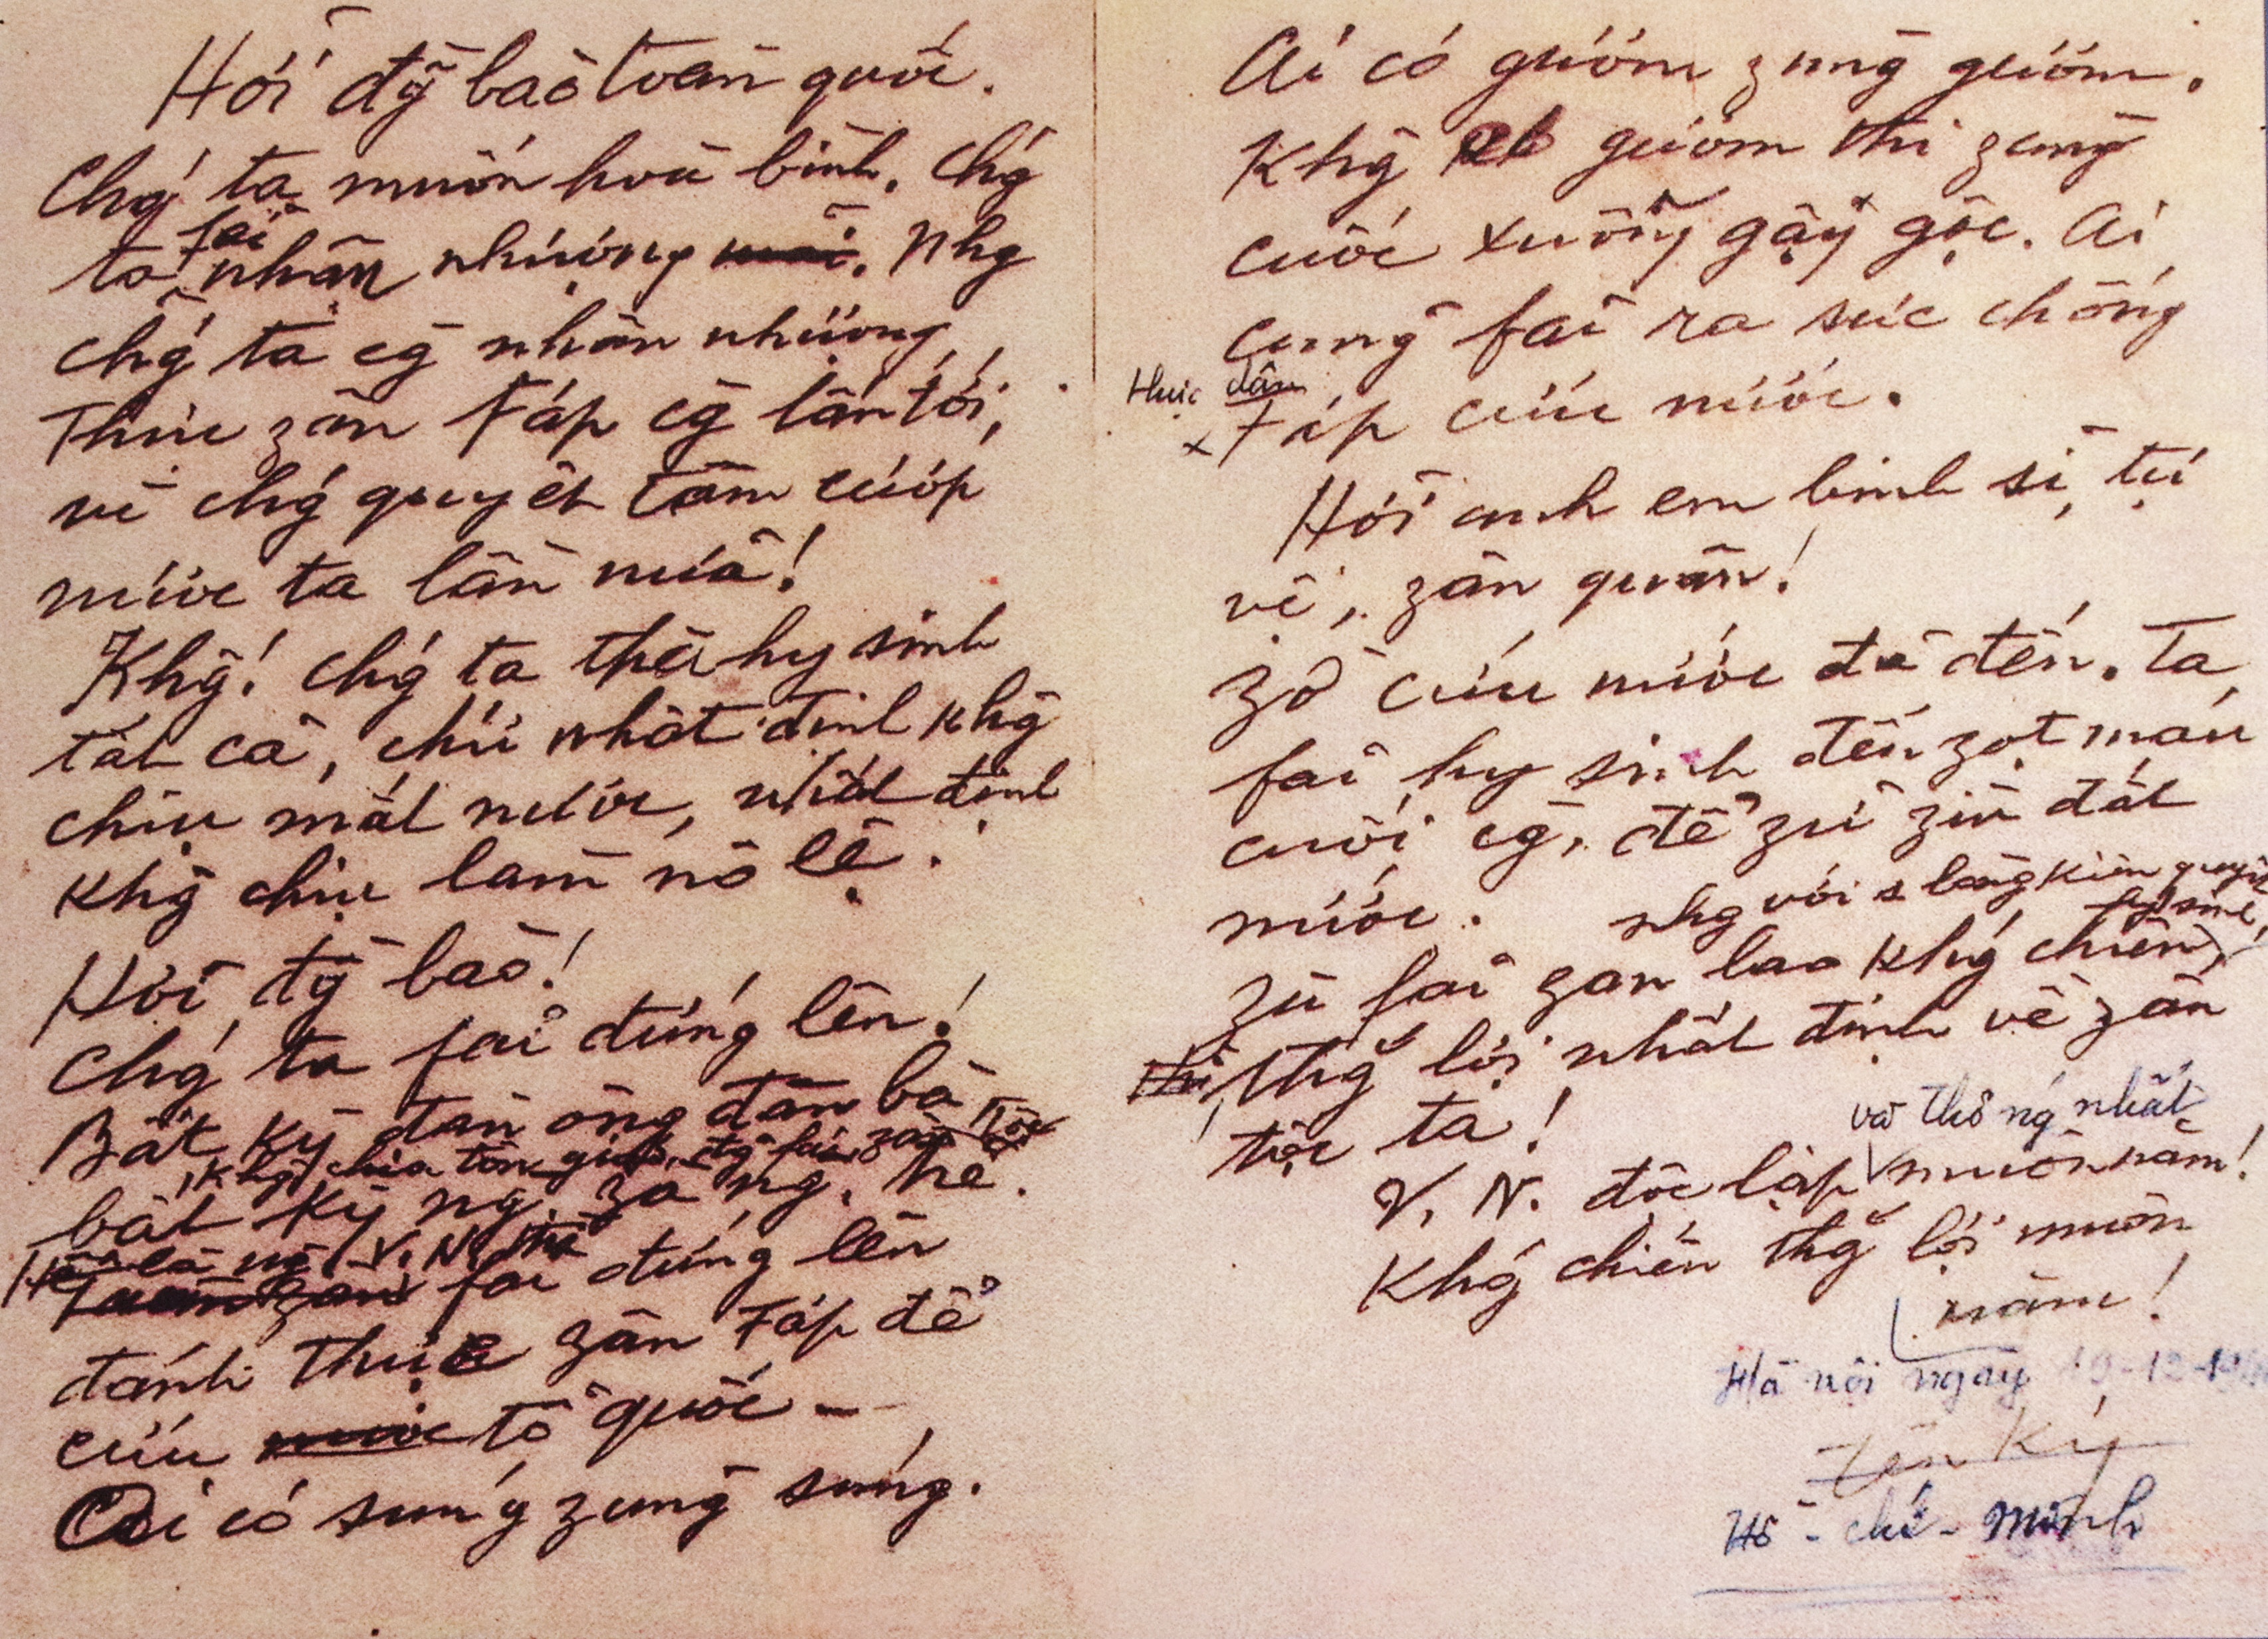 Hỡi đg̀ bào toàn quốc.
Chǵ ta muốn hoà bình. Chǵ
fải
ta nhân nhượng mãi. Nhg
chǵ ta cg̀ nhân nhượng,
Thực zân Fáp cg̀ lấn tới,
vì chǵ quyết tâm cướp
nước ta lần nữa!
Khg! chǵ ta thà hy sinh
tất cả, chứ nhất định khg
chịu mất nước, nhất định
khg chịu làm nô lệ.
Hỡi đg̀ bào!
Chǵ ta fải đứng lên!
Bất kỳ đàn ông đàn bà
khg chia tôn giáo, đg̉ fái, zân tộc
bất kỳ ng. zà ng. trẻ.
Hễ là ng. V. N. thì
fải đứng lên
đánh thực zân Fáp để
cứu nước tổ quốc –
Ai có súng zùng súng.
Ai có gươm zùng gươm.
Khg gươm thì zùng
cuốc xuổng gậy gộc. Ai
cũng fải ra sức chống
thực dân
x Fáp cứu nước.
Hỡi anh em binh sĩ, tự
vệ, zân quân!
Zờ cứu nước đã đến. Ta
fải hy sinh đến zọt máu
cuối cg̀, để zữ zìn đất
nước.
nhg với 1 lòng kiên quyết
hy sinh,
Zù fải zan lao khǵ chiến,
thì thğ́ lợi nhất định về zân
tộc ta!
và thống nhất
V. N. độc lập muôn năm!
Khǵ chiến thğ́ lợi muôn
năm!
Hà nội ngày 19-12-19
Tên Ký
Hồ - chí - Minh